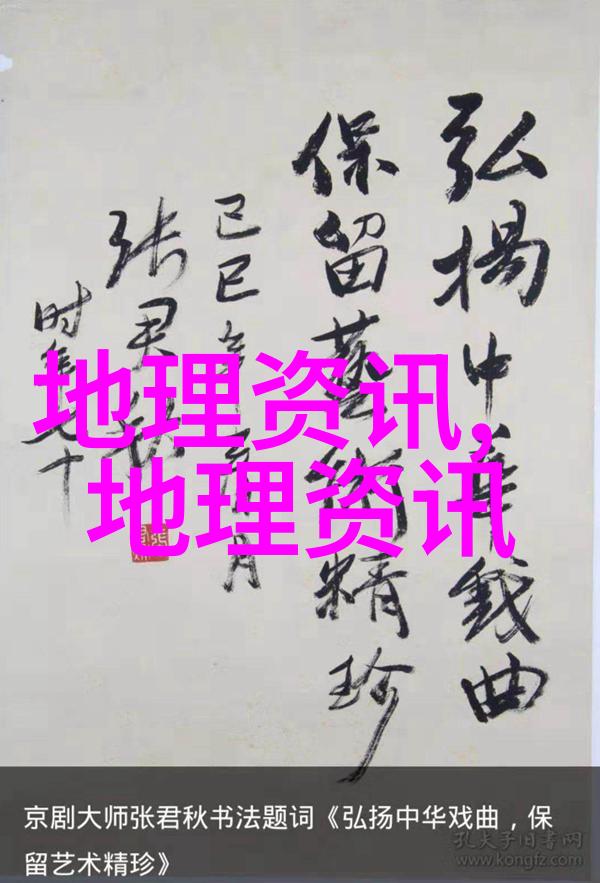 弘揚中華戲曲
保留藝術精珍
己巳年月
张君秋
时年七十
地理资讯,
地理资讯
京剧大师张君秋书法题词《弘扬中华戏曲，保
留艺术精珍》
孔夫子旧书网
www.kongfz.com